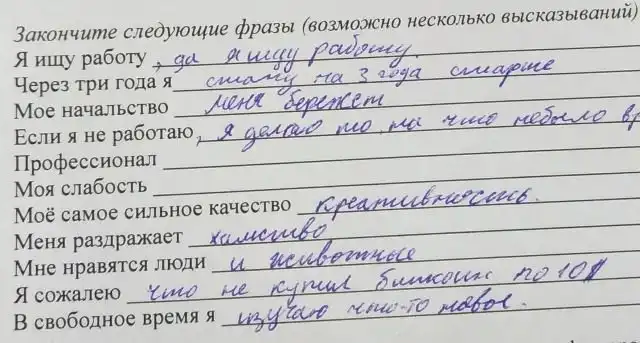 Закончите следующие фразы (возможно несколько высказываний)
Я ищу работу, да я ищу работу.
Через три года я стану на 3 года старше
Мое начальство меня бережет
Если я не работаю, я делаю то, на что небыло
Профессионал
Моя слабость
Моё самое сильное качество креативность.
Меня раздражает хамство
Мне нравятся люди и животные
Я сожалею что не купил биткоин по 10$
В свободное время я изучаю что-то новое.